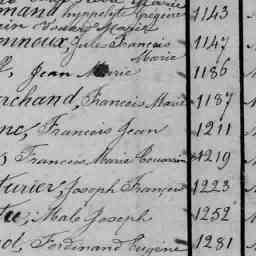 mand, hyppolyte Grégoire 1143
mnoux, Jule François Marie 1147
Jean Marie 1186
rchand, Francois Marie 1187
ne, Francois Jean 1211
Francois Marie 1219
turier, Joseph François 1223
Malo Joseph 1252
Ferdinand Eugène 1281